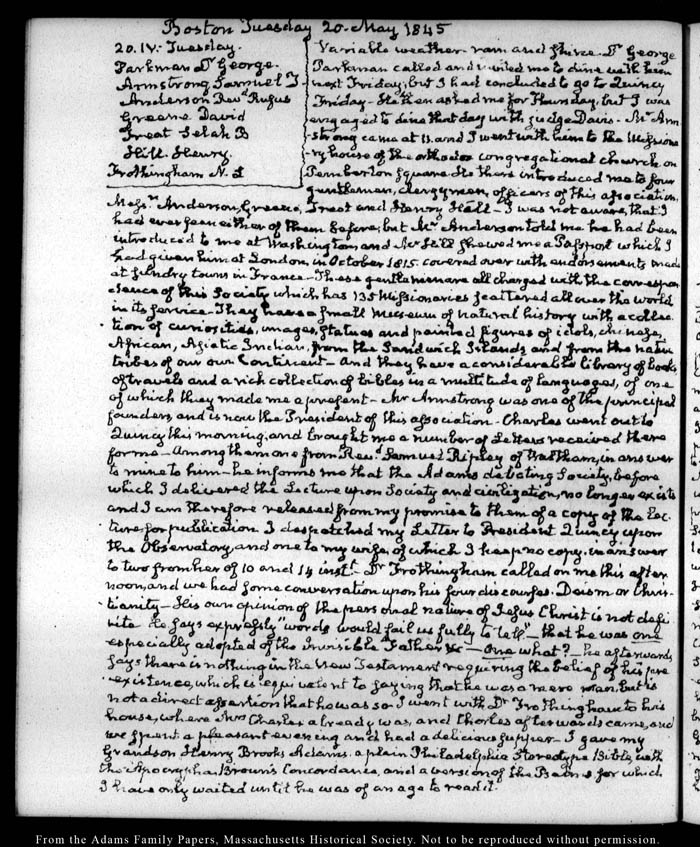 Boston Tuesday 20. May 1845
20. IV. Tuesday.
Parkman Dr George.
Armstrong Samuel T
Anderson Revd Rufus
Greene David
Treat Selah B
Hill. Henry.
Frothingham N. L
Variable weather rain and shine. Dr George
Parkman called and invited me to dine with him
next Friday, but I had concluded to go to Quincy
Friday - He then asked me for Thursday, but I was
engaged to dine that day with judge Davis - Mr Arm
-strong came at 11. and I went with him to the Missiona
-ry house of the orthodox congregational church on
Pemberton Square. He there introduced me to four
gentlemen, clergymen, officers of this association,
Messrs Anderson, Greene, Treat and Henry Hill - I was not aware, that I
had ever seen either of them before, but Mr Anderson told me he had been
introduced to me at Washington, and Mr Hill shewed me a Passport which I
had given him at London, in October 1815. covered over with endorsements made
at sundry towns in France - These gentlemen are all charged with the correspon
dence of this Society which has 135 Missionaries scattered all over the world
in its service. They have a small Museum of natural history with a collec
tion of curiosities, images, statues and painted figures of idols, chinese,
African, Asiatic Indian, from the Sandwich Islands and from the native
tribes of our own Continent - And they have a considerable library of books
of travels and a rich collection of bibles in a multitude of languages, of one
of which they made me a present - Mr Armstrong was one of the principal
founders and is now the President of this association - Charles went out to
Quincy this morning, and brought me a number of Letters received there
for me - Among them one from Revd Samuel Ripley of Waltham, in answer
to mine to him - he informs me that the Adams debating Society, before
which I delivered the Lecture upon Society and civilization, no longer exists
and I am therefore released from my promise to them of a copy of the Lec-
ture for publication. I despatched my Letter to President Quincy upon
the Observatory, and one to my wife, of which I keep no copy. in answer
to two from her of 10 and 14 instt - Dr Frothingham called on me this after
noon, and we had some conversation upon his four discourses. Deism or Chris-
tianity - His own opinion of the personal nature of Jesus Christ is not defi
nite He says expressly "words would fail us fully to tell" - that he was one
especially adopted of the Invisible Father &c - One what? - he afterwards
says there is nothing in the New Testament requiring the belief of his pre
-existence, which is equivalent to saying that he was a mere man, but is
not a direct assertion that he was so. I went with Dr Frothingham to his
house, where Mrs Charles already was, and Charles afterwards came, and
we spent a pleasant evening and had a delicious supper - I gave my
Grandson Henry Brooks Adams. a plain Philadelphia Stereotype Bible, with
the Apocrypha Brown's Concordance, and a version of the Psalms for which
I have only waited until he was of an age to read it.
From the Adams Family Papers, Massachusetts Historical Society. Not to be reproduced without permission.